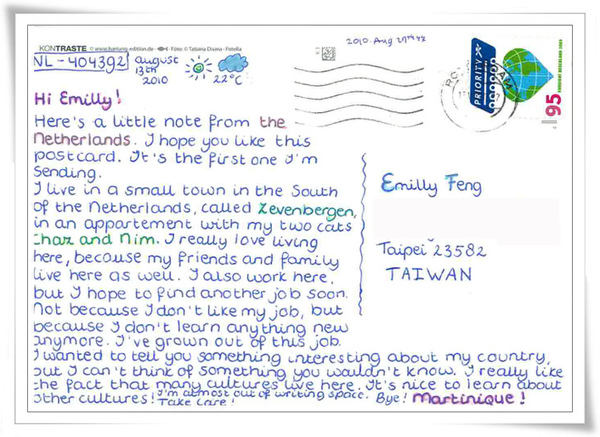 KONTRASTE © www.hartung-edition.de · Foto: © Tatjana Divina - Fotolia
NL - 404392
august
13th
2010
22°C
Hi Emilly!
Here's a little note from the
Netherlands. I hope you like this
postcard. It's the first one I'm
sending.
I live in a small town in the South
of the Netherlands, called Zevenbergen,
in an appartement with my two cats
Chaz and Nim. I really love living
here, because my friends and family
live here as well. I also work here,
but I hope to find another job soon.
Not because I don't like my job, but
because I don't learn anything new
anymore. I've grown out of this job.
I wanted to tell you something interesting about my country,
but I can't think of something you wouldn't know. I really like
the fact that many cultures live here. It's nice to learn about
other cultures! I'm almost out of writing space. Bye! Martinique!
Take care!
2010. Aug
PRIORITY
95
Emilly Feng
Taipei 23582
TAIWAN